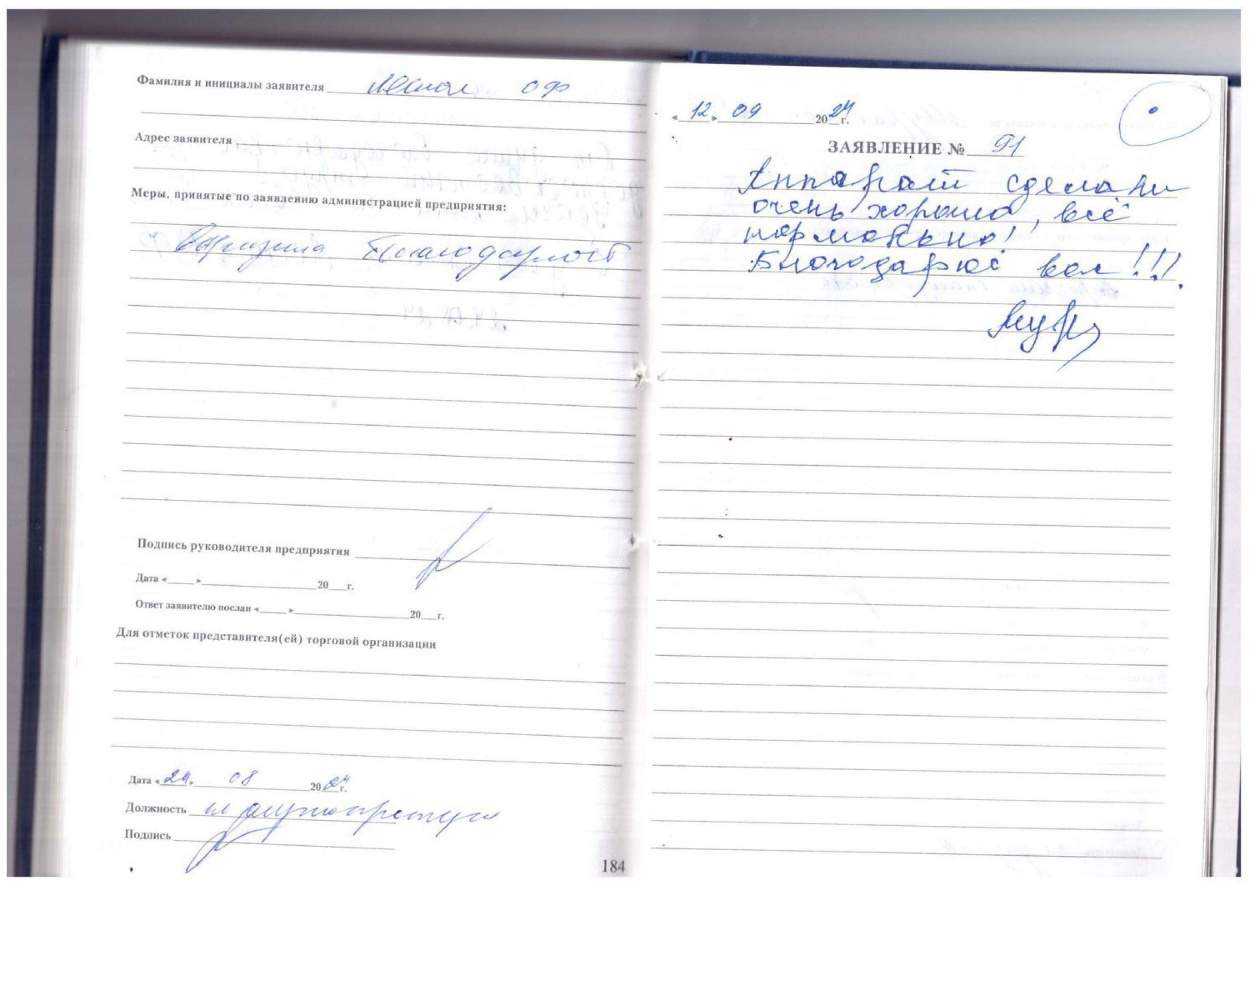 Фамилия и инициалы заявителя О Ф
Адрес заявителя
Меры, принятые по заявлению администрацией предприятия:
Благодарность
Подпись руководителя предприятия
Дата «____»____________20___г.
Ответ заявителю послан «____»____________20___г.
Для отметок представителя(ей) торговой организации
Дата «24» 08 2024г.
Должность
Подпись
184
«12» 09 2024г.
ЗАЯВЛЕНИЕ № 91
Аппарат сделали
очень хорошо, всё
нормально!
Благодарю вас!!!.